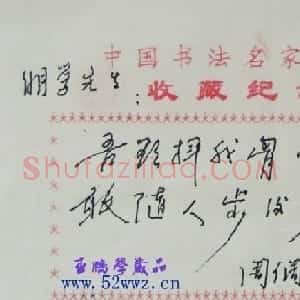 中国书法名家
明学先生：
收藏纪
吾祖择我骨
Shufaziliao.com
敢随人步后
亚鹏学藏品
www.52wwz.cn